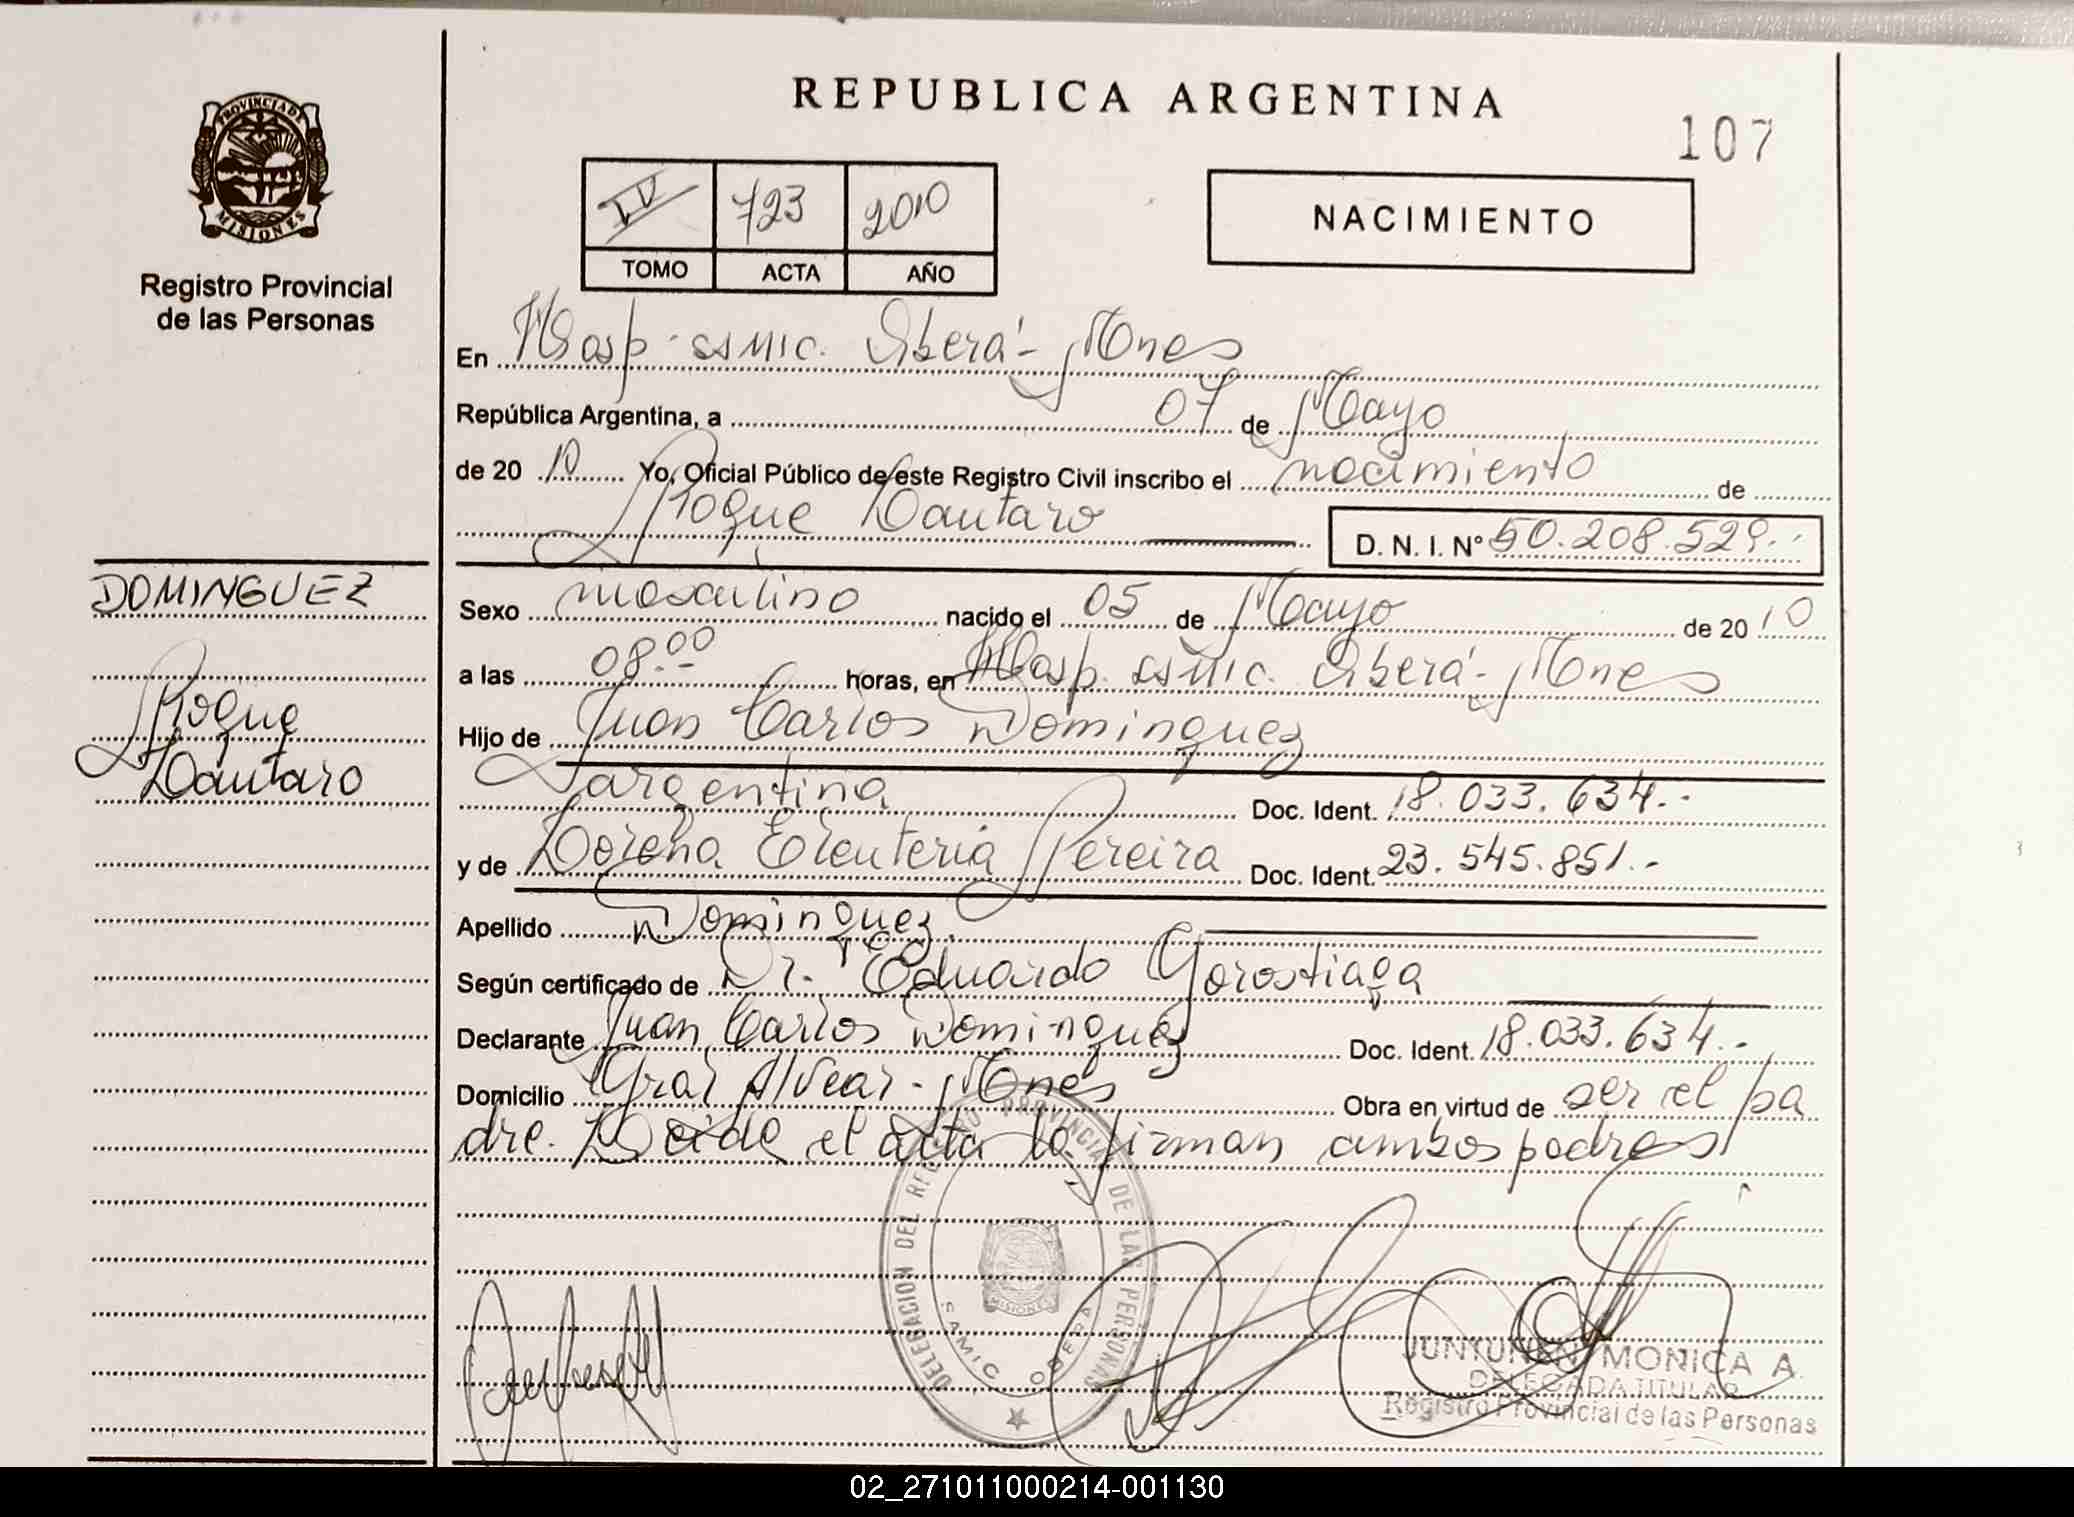 REPUBLICA ARGENTINA
107
PROVINCIA DE
MISIONES
Registro Provincial
de las Personas
IV 723 2010
TOMO ACTA AÑO
NACIMIENTO
En Hosp. SAMIC. Oberá - Mnes
República Argentina, a 07 de Mayo
de 20 10 Yo, Oficial Público de este Registro Civil inscribo el nacimiento de
Roque Lautaro D. N. I. Nº 50.208.529.-
DOMINGUEZ
Roque
Lautaro
Sexo masculino nacido el 05 de Mayo de 20 10
a las 08.00 horas, en Hosp. SAMIC. Oberá - Mnes
Hijo de Juan Carlos Dominguez
argentina Doc. Ident. 18.033.634.-
y de Lorena Eleuteria Pereira Doc. Ident. 23.545.851.-
Apellido Dominguez
Según certificado de Dr. Eduardo Gorostiaga
Declarante Juan Carlos Dominguez Doc. Ident. 18.033.634.-
Domicilio Gral Alvear - Mnes Obra en virtud de ser el pa
dre. Leida el acta la firman ambos padres
DELEGACION DEL REGISTRO PROVINCIAL DE LAS PERSONAS
MISIONES
SAMIC OBERA
MONICA A.
DELEGADA TITULAR
Registro Provincial de las Personas
02_271011000214-001130